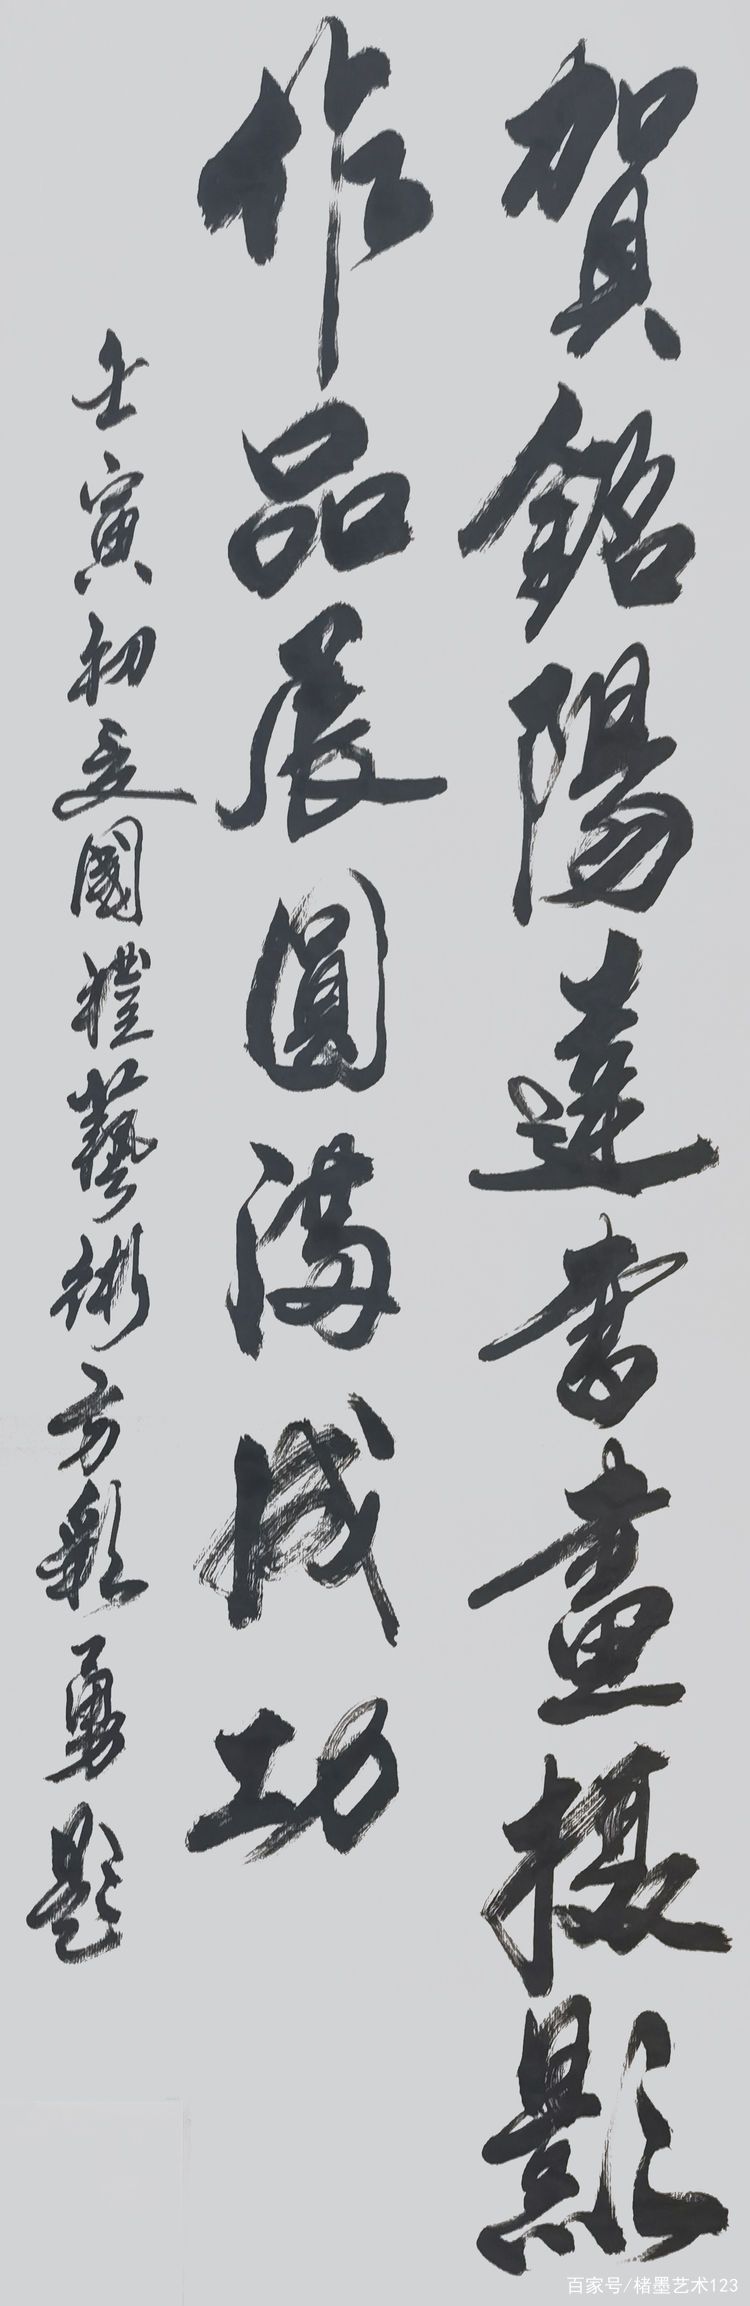 賀銘陽達書畫摄影
作品展圓满成功
壬寅初夏國禮藝術方彩勇題
百家号/楮墨艺术123